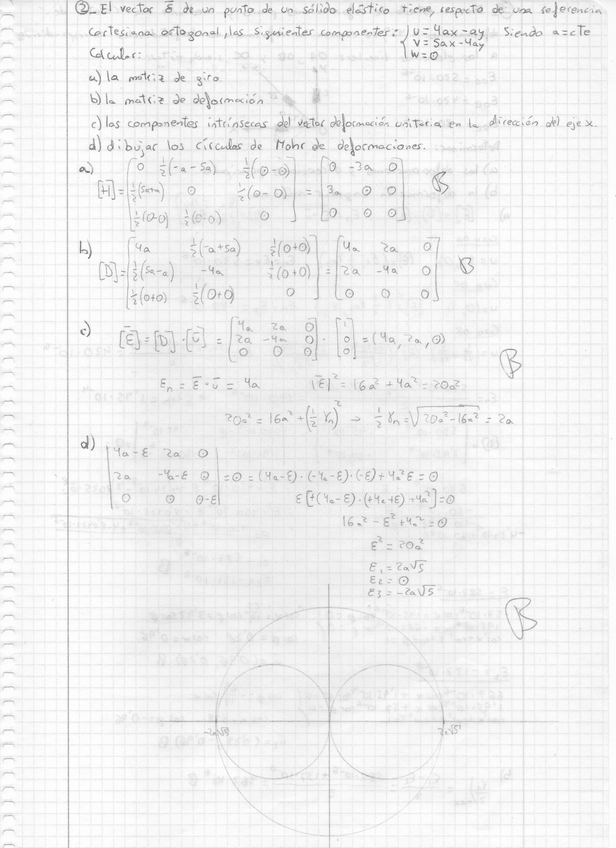 ② El vector δ̄ de un punto de un sólido elástico tiene, respecto de una referencia
cartesiana ortogonal, las siguientes componentes: { u = 4ax - ay
v = 5ax - 4ay
w = 0
Siendo a = cte
Calcular:
a) la matriz de giro
b) la matriz de deformación
c) las componentes intrínsecas del vector deformación unitaria en la dirección del eje x.
d) dibujar los círculos de Mohr de deformaciones.
a)
[H] = [0 ½(-a-5a) ½(0-0); ½(5a+a) 0 ½(0-0); ½(0-0) ½(0-0) 0] = [0 -3a 0; 3a 0 0; 0 0 0] B
b)
[D] = [4a ½(-a+5a) ½(0+0); ½(5a-a) -4a ½(0+0); ½(0+0) ½(0+0) 0] = [4a 2a 0; 2a -4a 0; 0 0 0] B
c)
[ε̄] = [D] · [ū] = [4a 2a 0; 2a -4a 0; 0 0 0] · [1; 0; 0] = (4a, 2a, 0)
B
εn = ε̄ · ū = 4a |ε̄|² = 16a² + 4a² = 20a²
20a² = 16a² + (½ γn)² → ½ γn = √(20a² - 16a²) = 2a
d)
|4a-ε 2a 0; 2a -4a-ε 0; 0 0 0-ε| = 0 = (4a-ε)·(-4a-ε)·(-ε) + 4a²ε = 0
ε[+(4a-ε)·(+4a+ε) + 4a²] = 0
16a² - ε² + 4a² = 0
ε² = 20a²
ε₁ = 2a√5
ε₂ = 0
ε₃ = -2a√5
B
-2a√5 2a√5